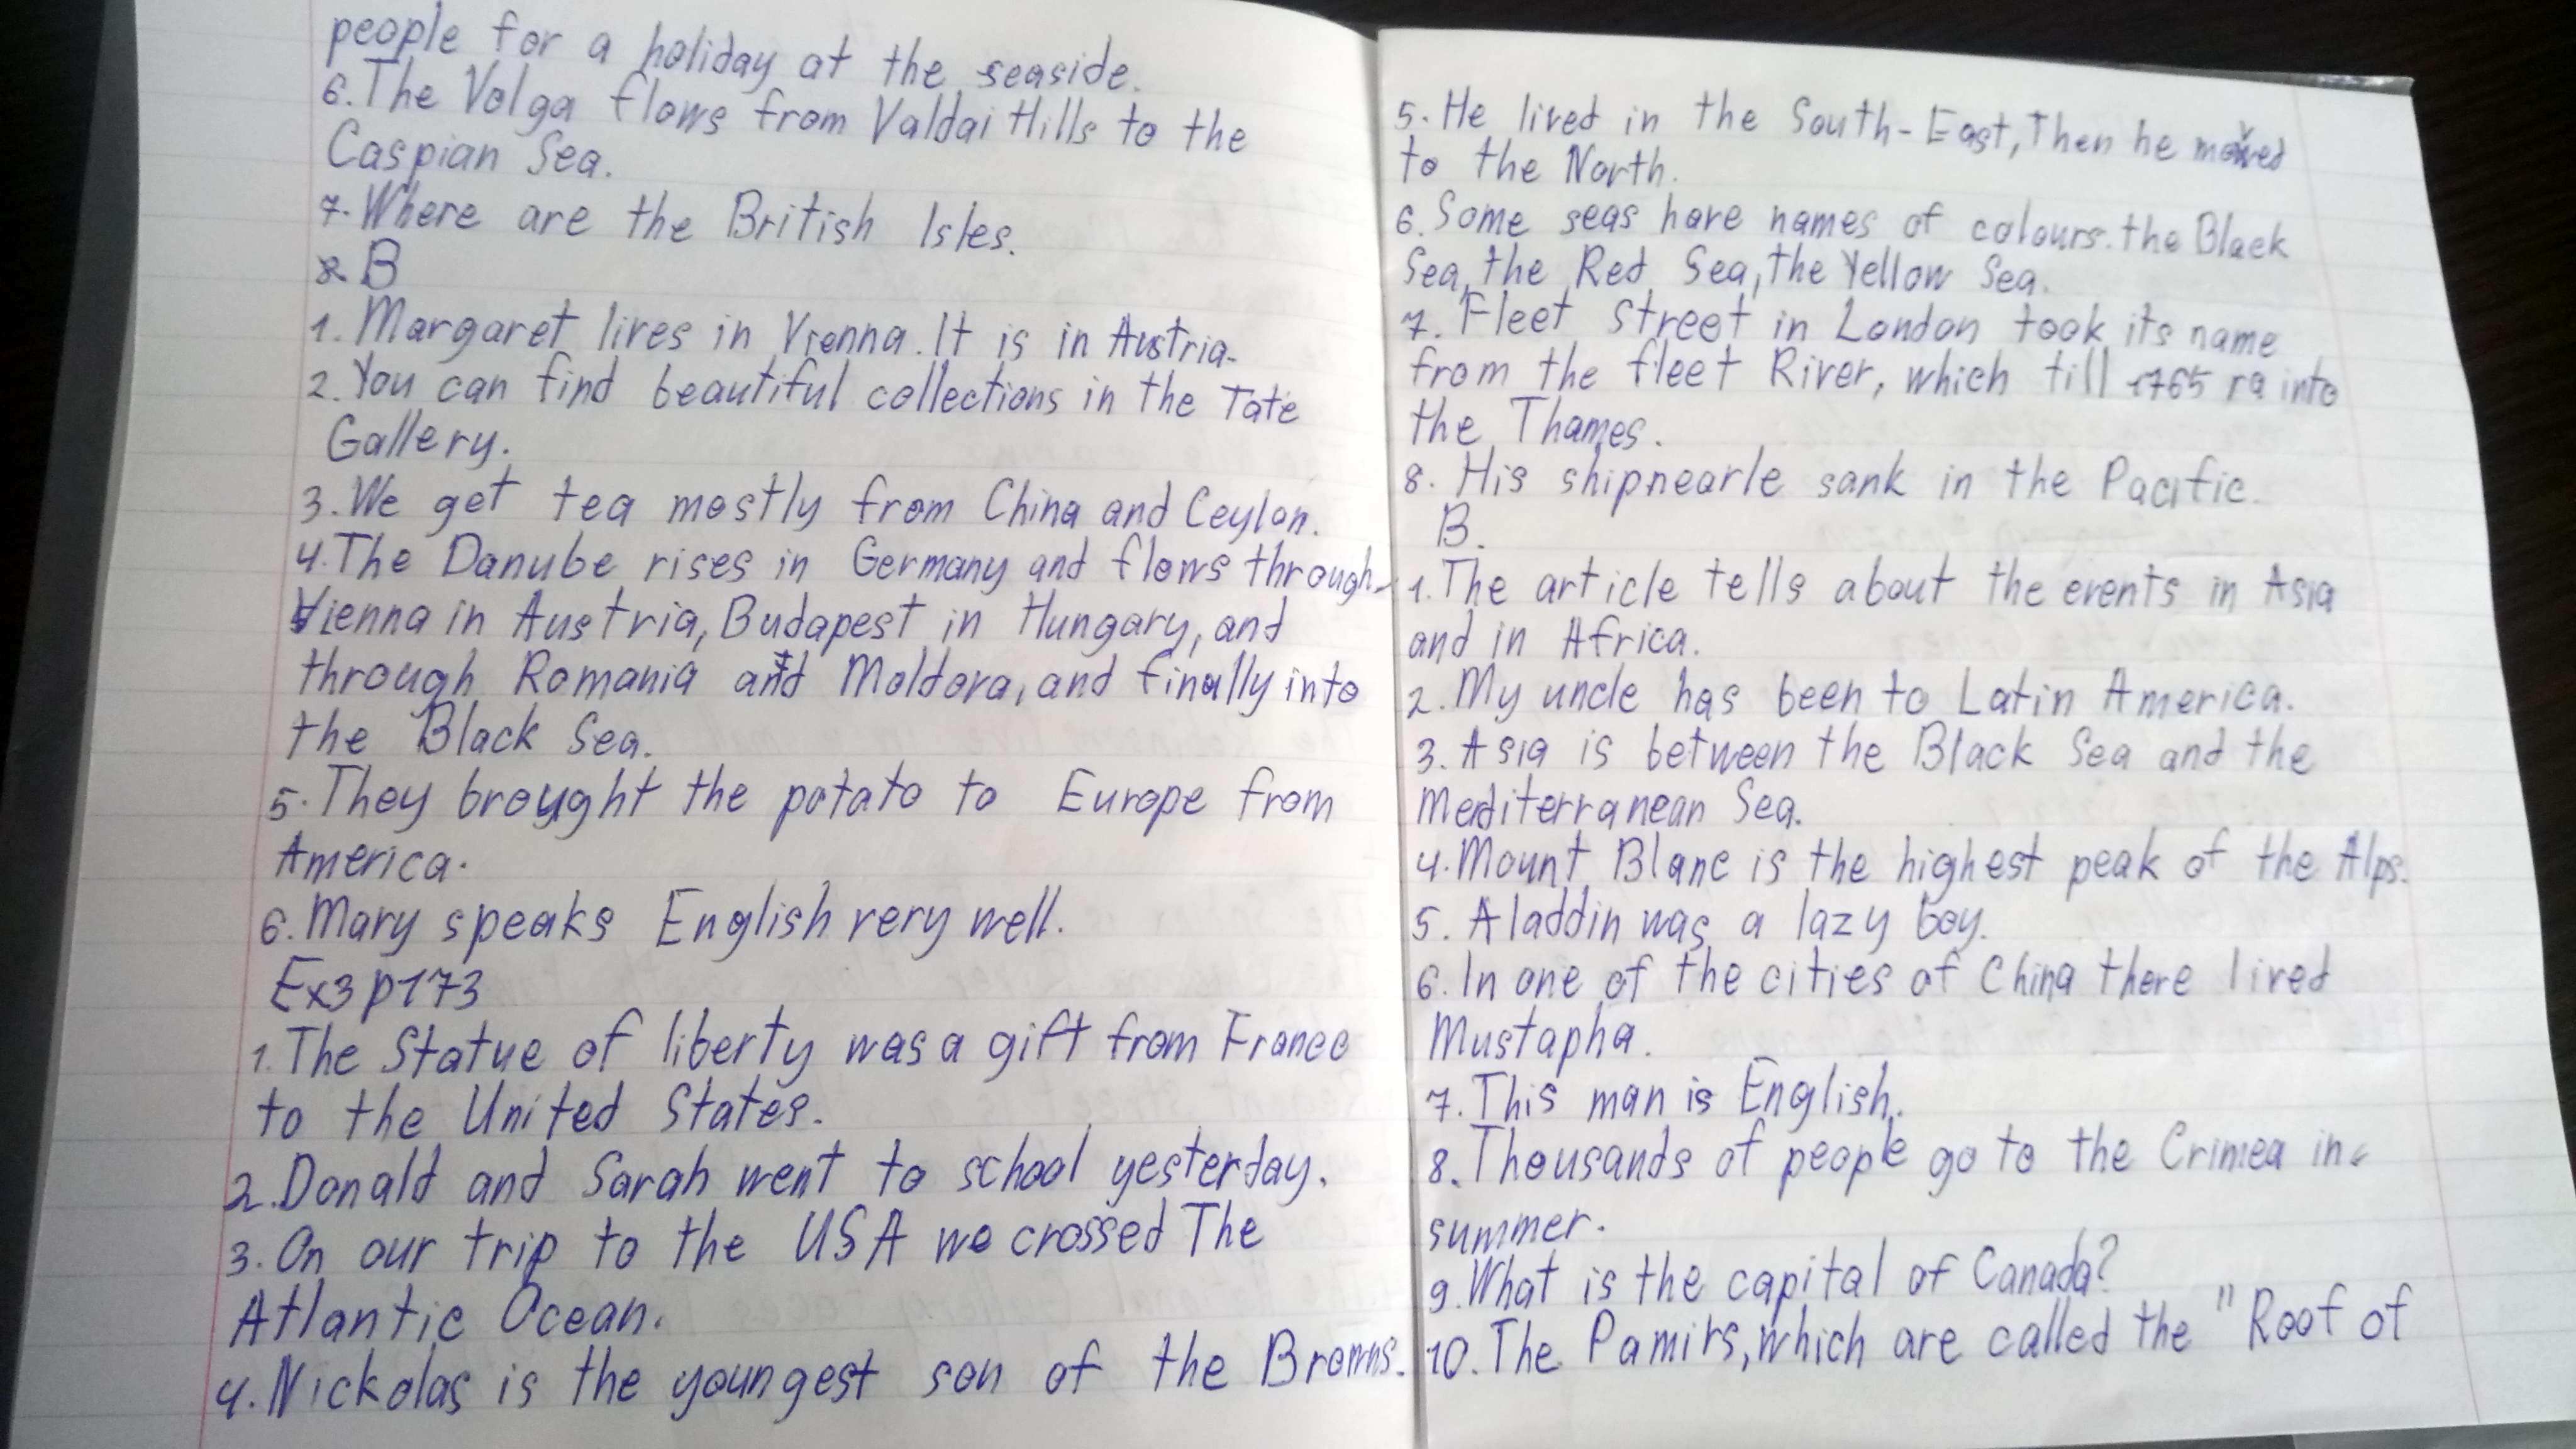 people for a holiday at the seaside.
6. The Volga flows from Valdai Hills to the
Caspian Sea.
7. Where are the British Isles.
B
1. Margaret lives in Vienna. It is in Austria.
2. You can find beautiful collections in the Tate
Gallery.
3. We get tea mostly from China and Ceylon.
4. The Danube rises in Germany and flows through
Vienna in Austria, Budapest in Hungary, and
through Romania and Moldova, and finally into
the Black Sea.
5. They brought the potato to Europe from
America.
6. Mary speaks English very well.
Ex3 p173
1. The Statue of liberty was a gift from France
to the United States.
2. Donald and Sarah went to school yesterday.
3. On our trip to the USA we crossed The
Atlantic Ocean.
4. Nickolas is the youngest son of the Browns.
5. He lived in the South-East, Then he moved
to the North.
6. Some seas have names of colours. the Black
Sea, the Red Sea, the Yellow Sea.
7. Fleet Street in London took its name
from the fleet River, which till 1765 ra into
the Thames.
8. His shipnearle sank in the Pacific.
B.
1. The article tells about the events in Asia
and in Africa.
2. My uncle has been to Latin America.
3. Asia is between the Black Sea and the
Mediterranean Sea.
4. Mount Blanc is the highest peak of the Alps.
5. Aladdin was a lazy boy.
6. In one of the cities of China there lived
Mustapha.
7. This man is English.
8. Thousands of people go to the Crimea in
summer.
9. What is the capital of Canada?
10. The Pamirs, which are called the "Roof of